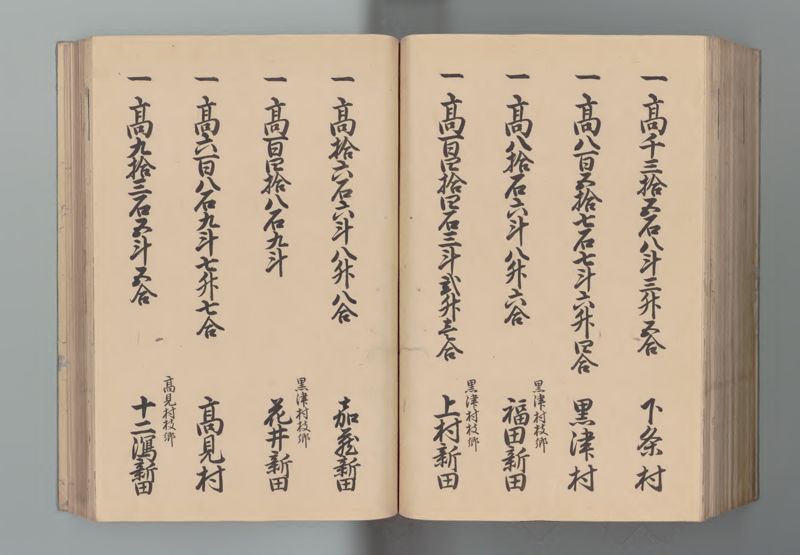 一高千三拾五石八斗三升五合 下条村
一高八百五拾七石七斗六升四合 黒津村
黒津村枝郷
一高八拾石六斗八升六合 福田新田
黒津村枝郷
一高百四拾四石三斗弐升壱合 上村新田
一高拾六石六斗八升八合 嘉蔵新田
黒津村枝郷
一高百四拾八石九斗 花井新田
一高六百八石九斗七升七合 高見村
高見村枝郷
一高九拾三石五斗五合 十二潟新田